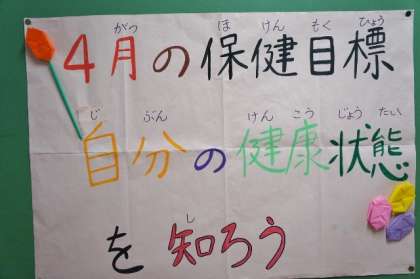 がつ ほ けん もく ひょう
4月の保健目標
じ ぶん けん こう じょう たい
自分の健康状態
し
を知ろう